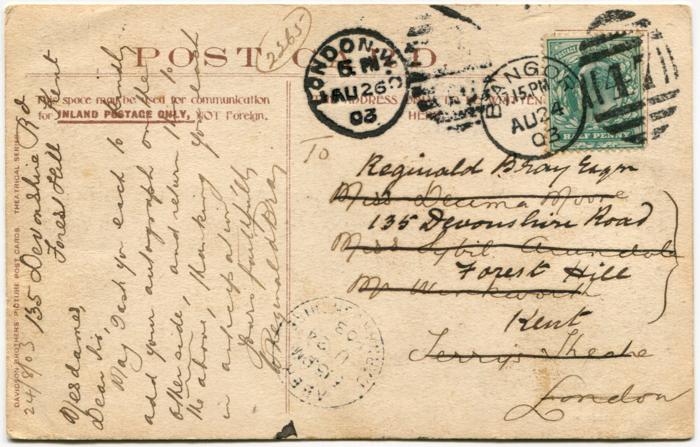 POST CARD.
2365
This space may be used for communication
for INLAND POSTAGE ONLY, NOT Foreign.
ADDRESS
HERE
DAVIDSON BROTHERS' PICTURE POST CARDS. THEATRICAL SERIES
24/8/03 135 Devonshire Rd
Forest Hill Kent
Mesdames,
Dear Sir,
May I ask you each to kindly
add your autograph on the
other side, and return this to
the above, thanking you each
in anticipation
Yours faithfully
W Reginald Bray
LONDON. W.C
5. PM
AU 26
03
BANGOR
7.15PM
AU 24
03
POSTAGE
HALF PENNY
To
Reginald Bray Esqre
Miss Decima Moore
135 Devonshire Road
Miss Sybil Arundale
Forest Hill
Mr Wenkworth
Kent
Terry's Theatre
London